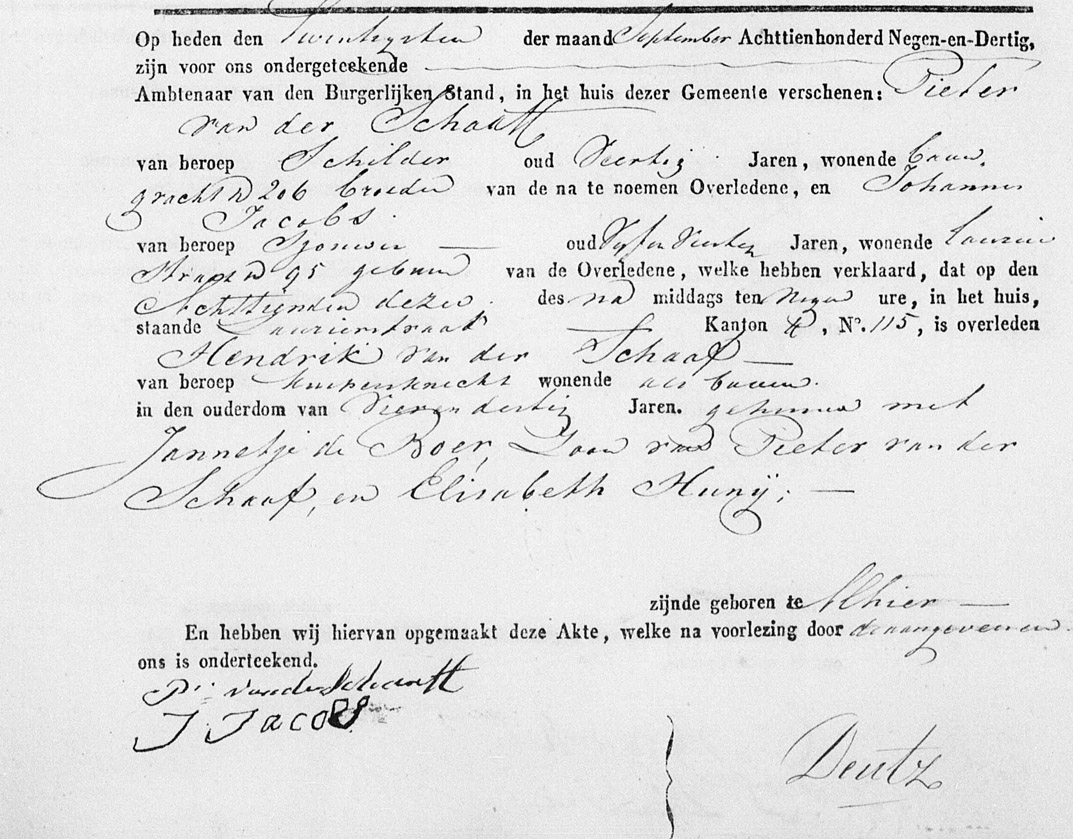 Op heden den Twintigsten der maand September Achttienhonderd Negen-en-Dertig,
zijn voor ons ondergeteekende
Ambtenaar van den Burgerlijken Stand, in het huis dezer Gemeente verschenen: Pieter
van der Schaaff
van beroep Schilder oud Veertig Jaren, wonende
gracht N 206 broeder van de na te noemen Overledene, en Johannes
Jacobs
van beroep Sjouwer oud Vyf en Veertig Jaren, wonende Laurier
Straat N 95 gebuur van de Overledene, welke hebben verklaard, dat op den
Achttienden dezer des na middags ten Negen ure, in het huis,
staande Laurierstraat Kanton , No. 115, is overleden
Hendrik van der Schaaf
van beroep Kuipersknecht wonende als boven
in den ouderdom van Vierendertig Jaren. gehuwd met
Jannetje de Boer, Zoon van Pieter van der
Schaaf, en Elisabeth Hunij;
zijnde geboren te Alhier
En hebben wij hiervan opgemaakt deze Akte, welke na voorlezing door de aangevers en
ons is onderteekend.
P. van der Schaaff
J Jacobs
Deutz